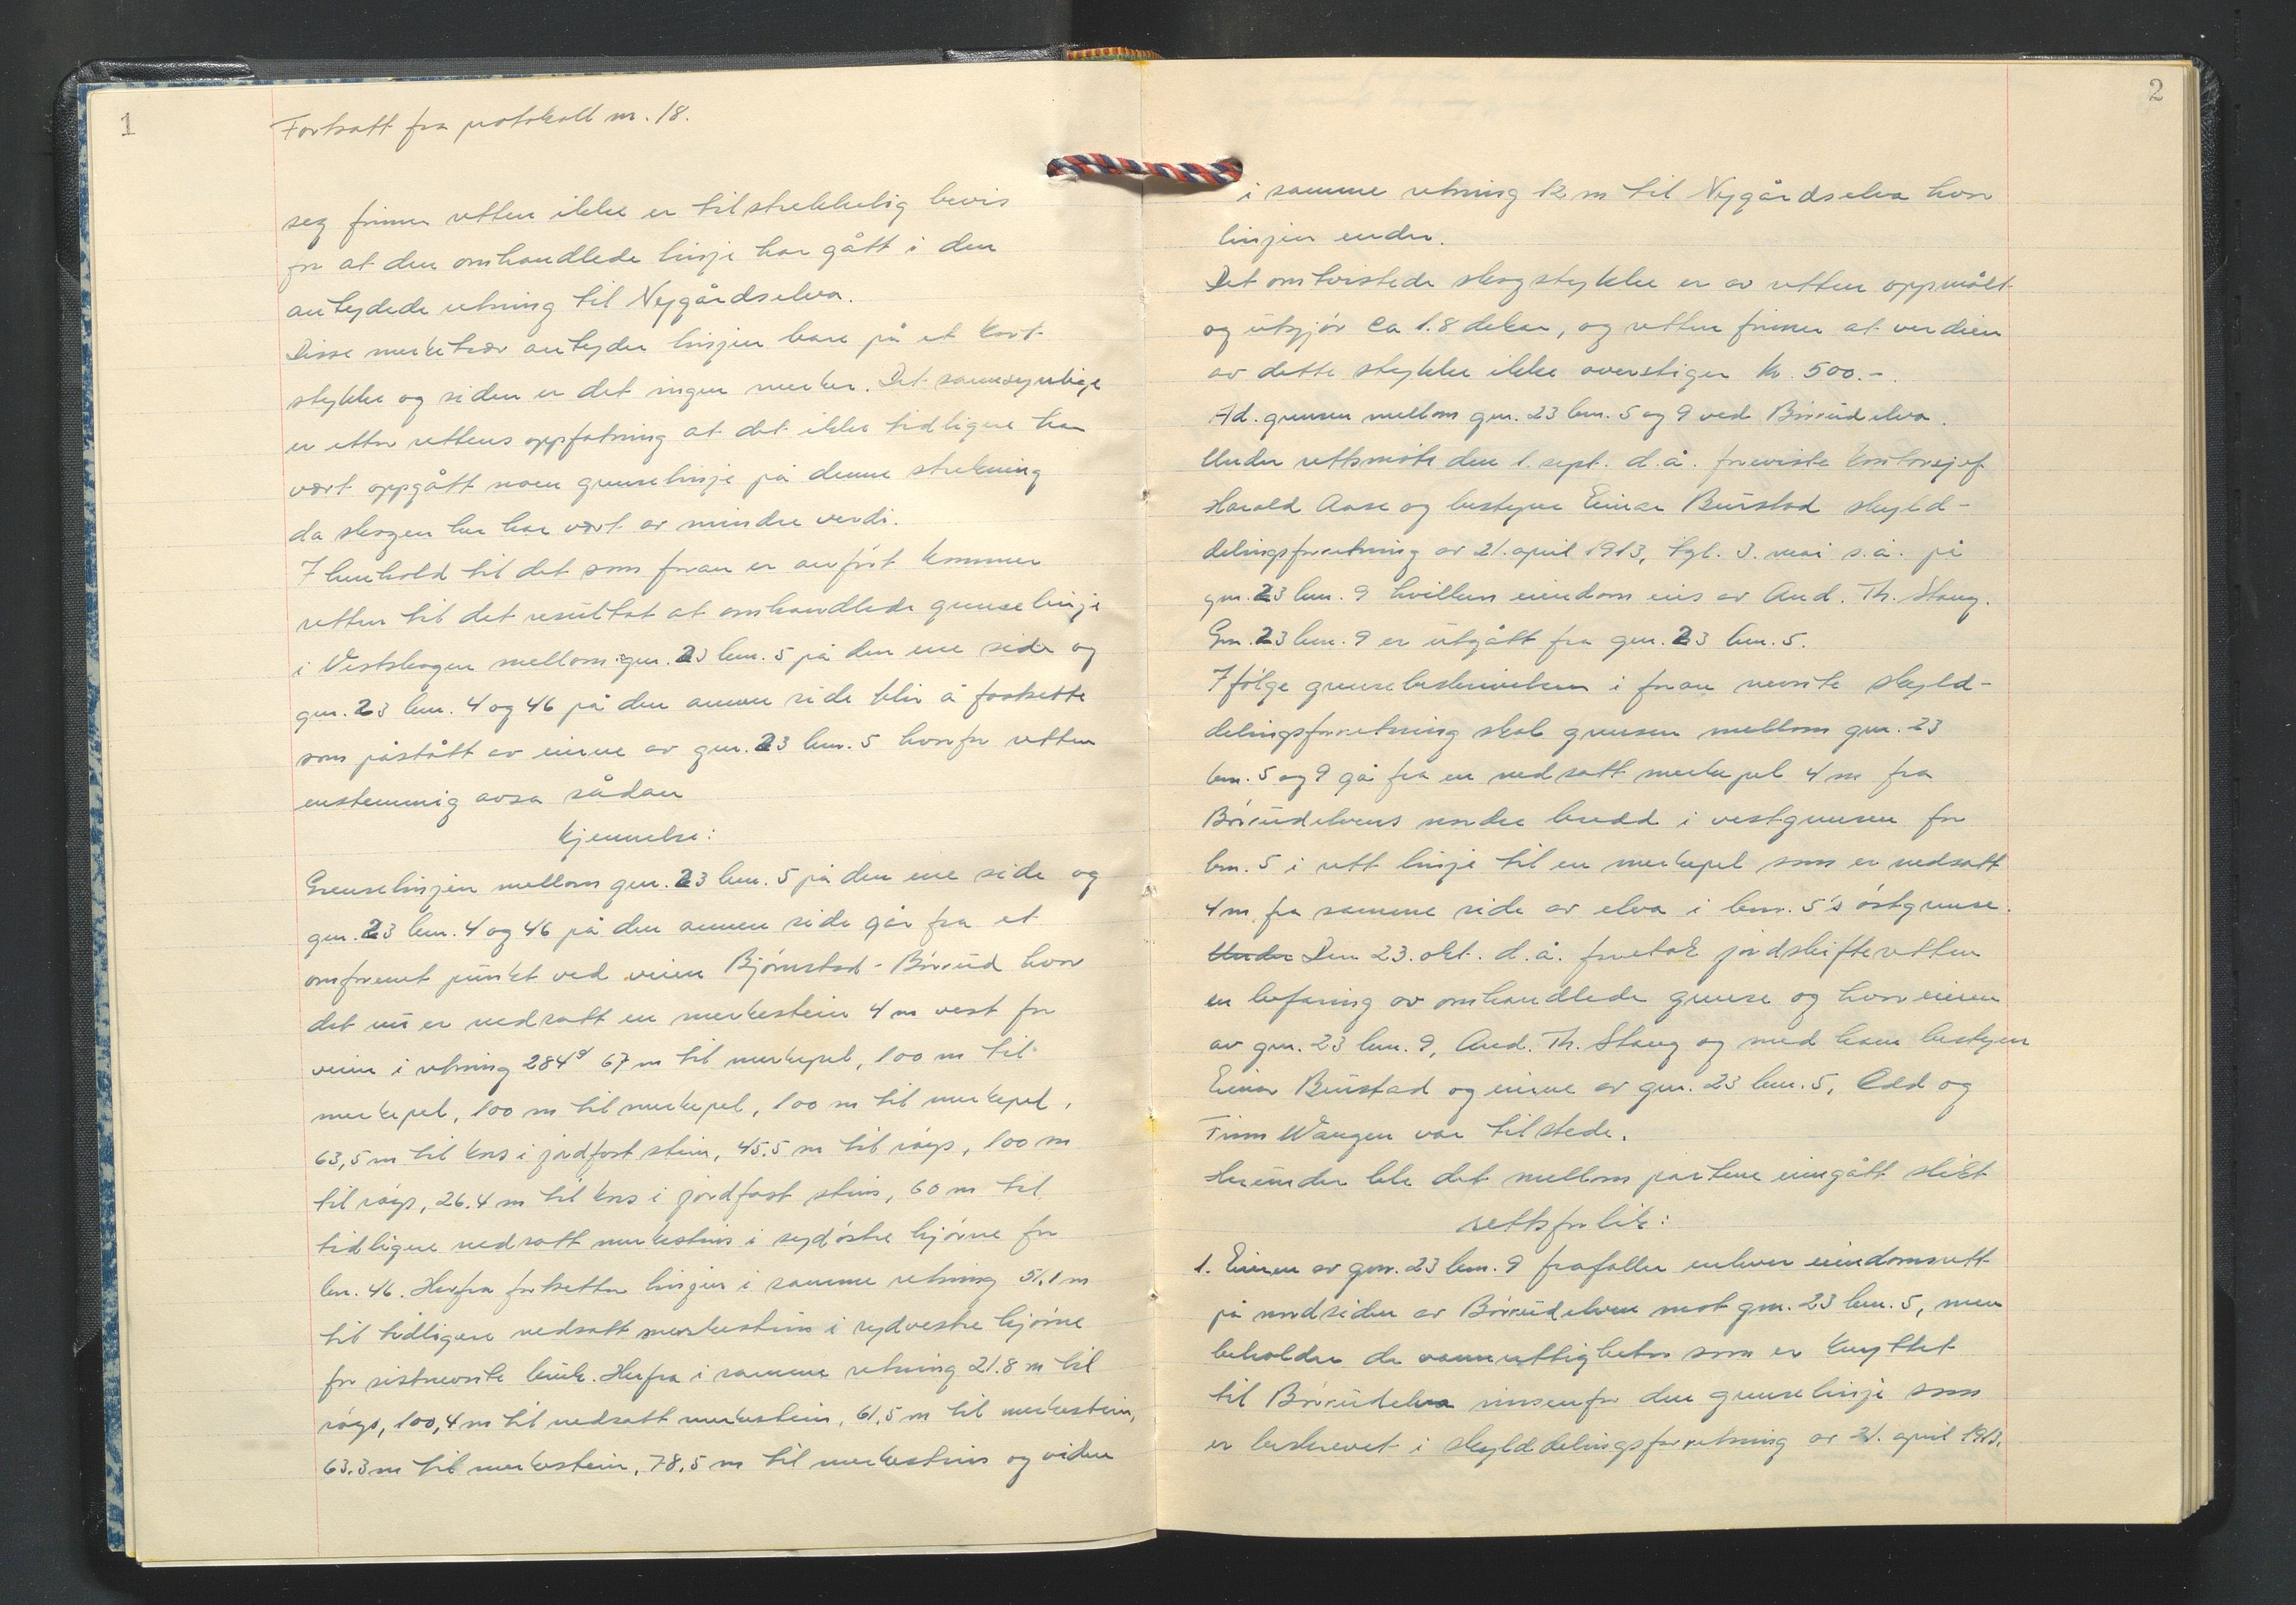 1
Fortsatt fra protokoll nr. 18.
seg finner retten ikke er tilstrekkelig bevis
for at den omhandlede linje har gått i den
antydede retning til Nygårdselva.
Disse merketrær antyder linjen bare på et kort
stykke og siden er det ingen merker. Det sannsynlige
er etter rettens oppfatning at det ikke tidligere har
vært oppgått noen grenselinje på denne strekning
da skogen her har vært av mindre verdi.
I henhold til det som foran er anført kommer
retten til det resultat at omhandlede grenselinje
i Vestskogen mellom gnr. 23 bnr. 5 på den ene side og
gnr. 23 bnr. 4 og 46 på den annen side blir å fastsette
som påstått av eierne av gnr. 23 bnr. 5 hvorfor retten
enstemmig avsa sådan
kjennelse:
Grenselinjen mellom gnr. 23 bnr. 5 på den ene side og
gnr. 23 bnr. 4 og 46 på den annen side går fra et
omforenet punkt ved veien Bjørnstad - Börrud hvor
det nu er nedsatt en merkestein 4 m vest for
veien i retning 284g 67 m til merkepel, 100 m til
merkepel, 100 m til merkepel, 100 m til merkepel,
63,5 m til kors i jordfast stein, 45.5 m til röys, 100 m
til röys, 26.4 m til kors i jordfast stein, 60 m til
tidligere nedsatt merkestein i sydöstre hjörne for
bnr. 46. Herfra fortsetter linjen i samme retning 51,1 m
til tidligere nedsatt merkestein i sydvestre hjörne
for sistnevnte bruk. Herfra i samme retning 21.8 m til
röys, 100,4 m til nedsatt merkestein, 61,5 m til merkestein,
63.3 m til merkestein, 78,5 m til merkestein og videre
2
i samme retning 12 m til Nygårdselva hvor
linjen ender.
Det omtvistede skogstykke er av retten oppmålt
og utgjör ca 1.8 dekar, og retten finner at verdien
av dette stykke ikke overstiger kr. 500.-.
Ad. grensen mellom gnr. 23 bnr. 5 og 9 ved Börrudelva.
Under rettsmöte den 1. sept. d.å. foreviste kontorsjef
Harald Aase og bestyrer Einar Burstad skyld-
delingsforretning av 21. april 1913, tgl. 3. mai s.å. på
gnr. 23 bnr. 9 hvilken eiendom eies av And. Th. Stang.
Gnr. 23 bnr. 9 er utgått fra gnr. 23 bnr. 5.
I fölge grensebeskrivelsen i foran nevnte skyld-
delingsforretning skal grensen mellom gnr. 23
bnr. 5 og 9 gå fra en nedsatt merkepel 4 m fra
Börrudelvens nordre bredd i vestgrensen for
bnr. 5 i rett linje til en merkepel som er nedsatt
4 m fra samme side av elva i bnr. 5's östgrense.
Under Den 23. okt. d.å. foretok jordskifteretten
en befaring av omhandlede grense og hvor eieren
av gnr. 23 bnr. 9, And. Th. Stang og med ham bestyrer
Einar Burstad og eierne av gnr. 23 bnr. 5, Odd og
Finn Wangen var tilstede.
Herunder ble det mellom partene inngått slikt
rettsforlik:
1. Eieren av gnr. 23 bnr. 9 frafaller enhver eiendomsrett
på nordsiden av Börrudelven mot gnr. 23 bnr. 5, men
beholder de vannrettigheter som er knyttet
til Börrudelva innenfor den grenselinje som
er beskrevet i skylddelingsforretning av 21. april 1913.